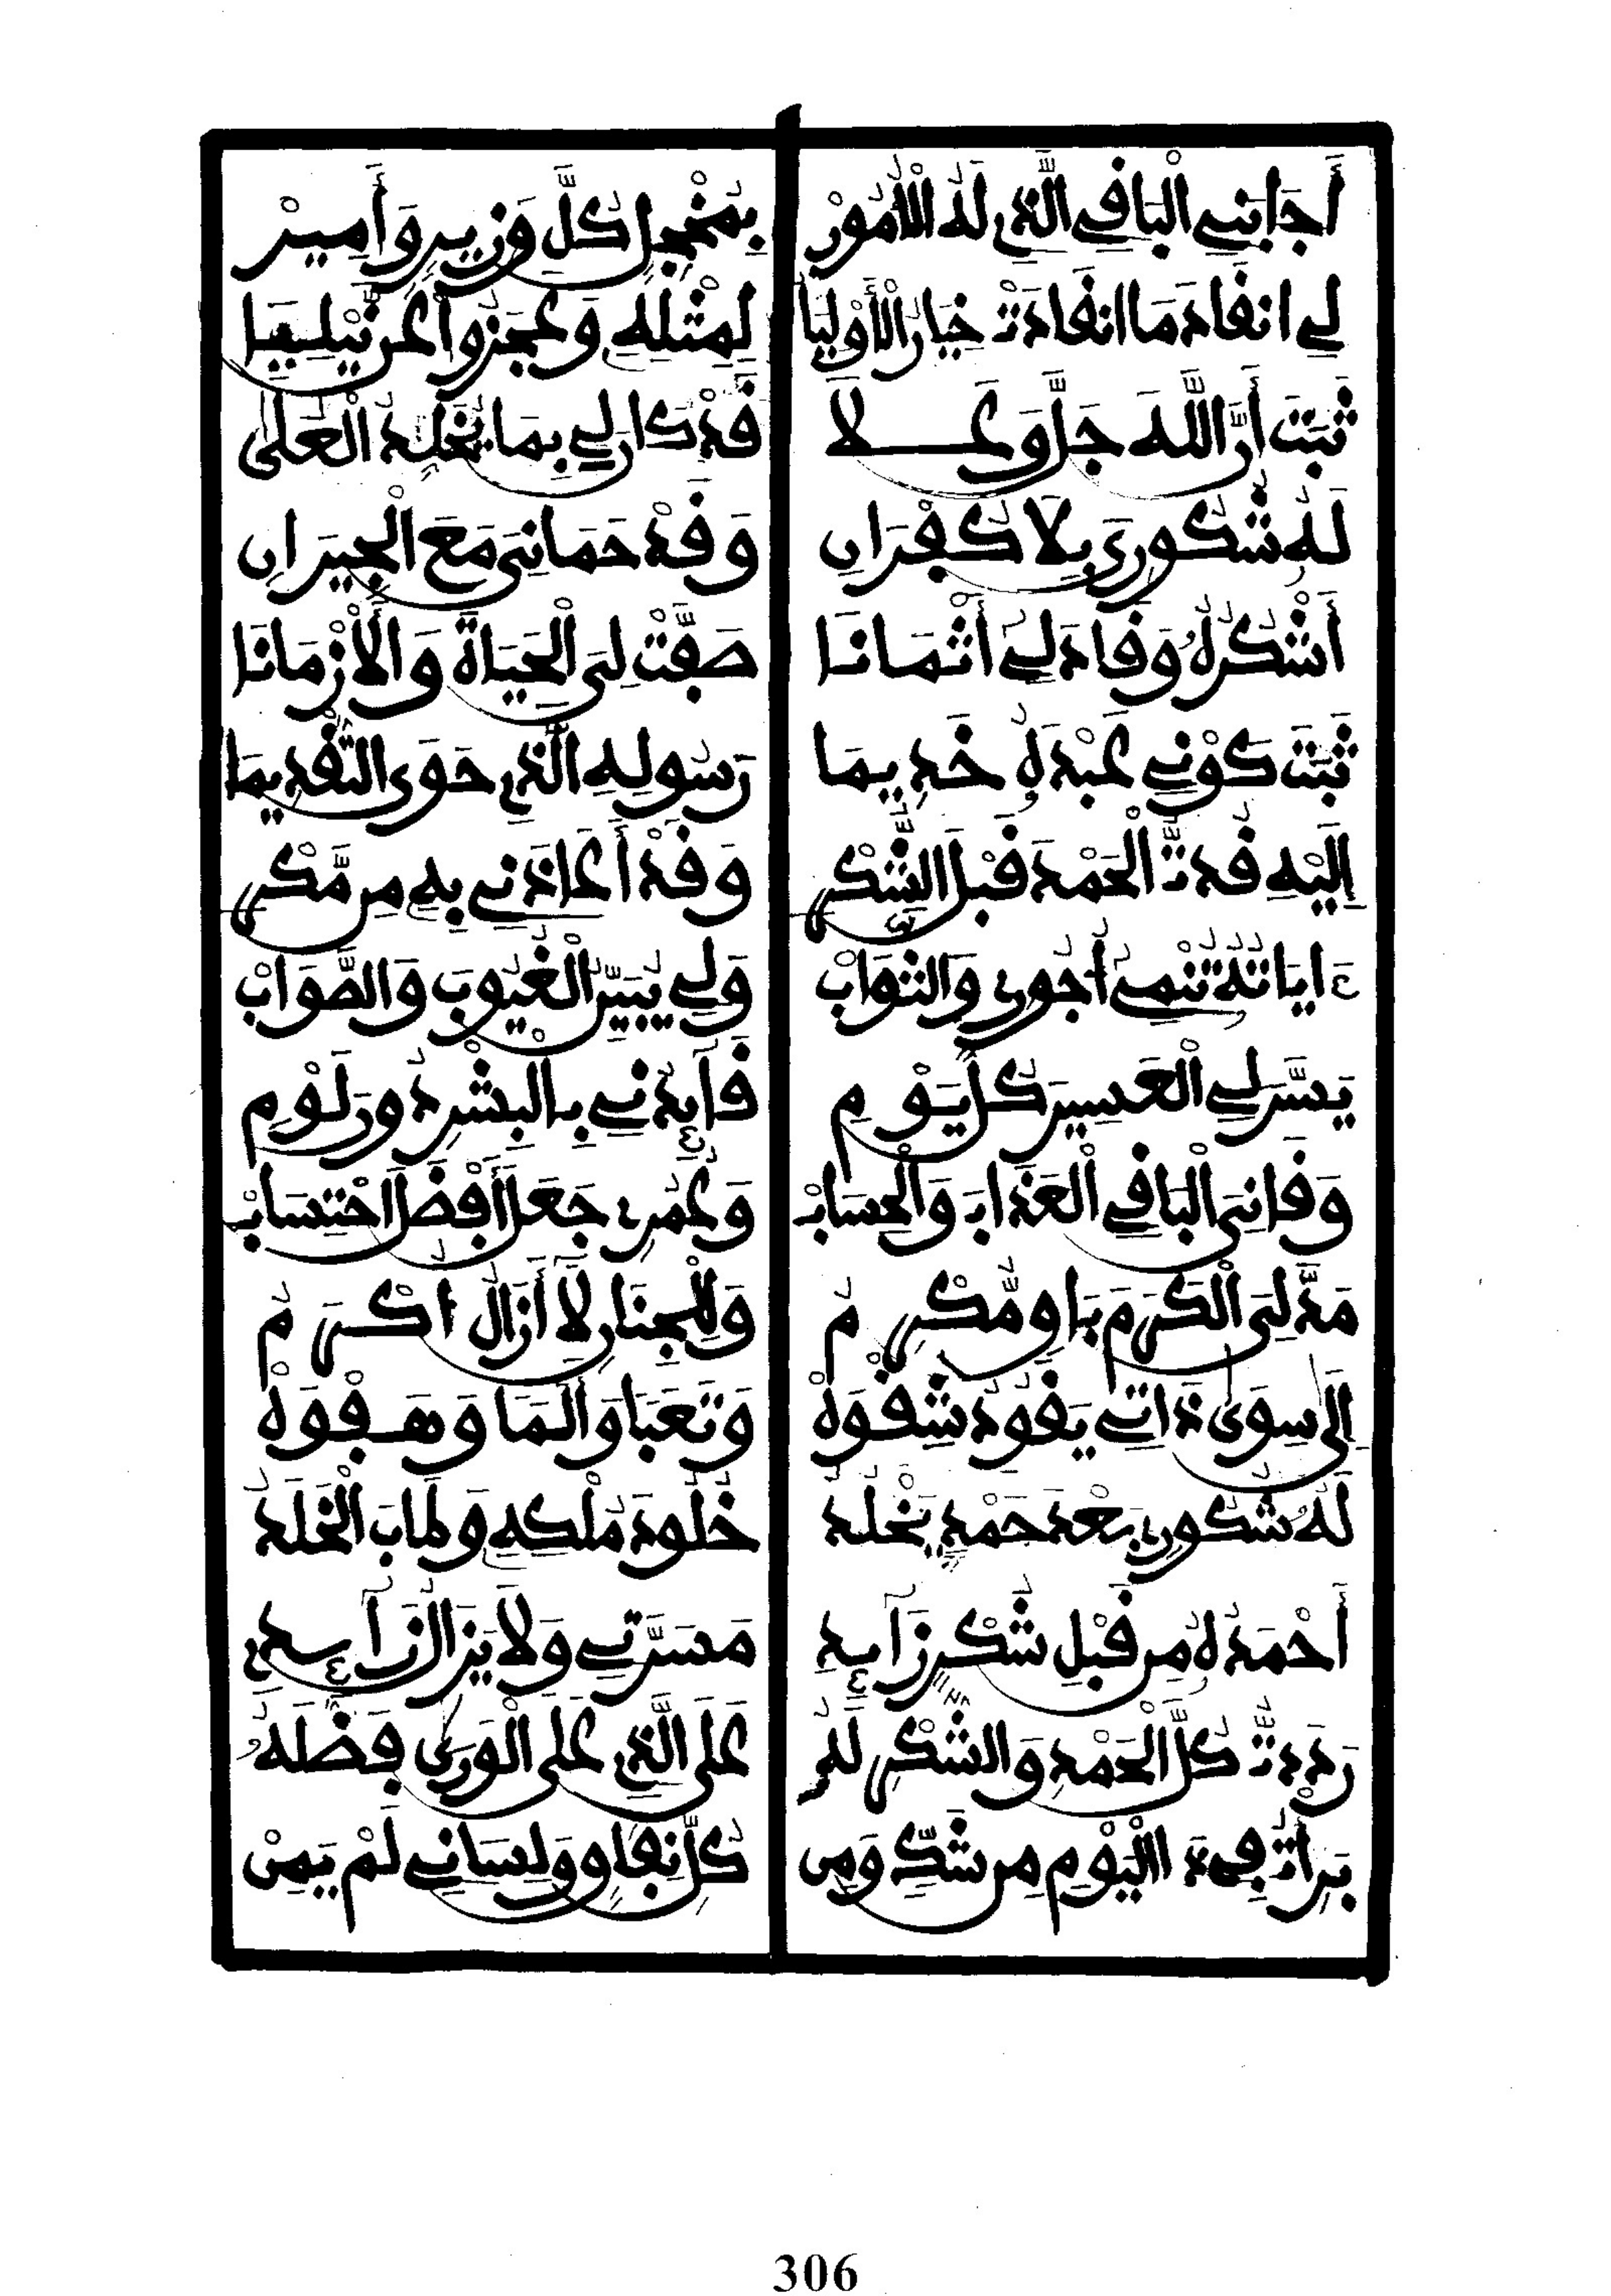 أَجَابَنِي الْبَاقِي الَّذِي لَهُ الْأُمُورْ بِمُخْجِلٍ كُلَّ وَزِيرٍ وَأَمِيرْ
لِي انْقَادَ مَا انْقَادَتْ خِيَارُ الْأَوْلِيَا لِمِثْلِهِ وَعَجَزُوا عَن نَّيْلِ
ثَبَتَ أَنَّ اللَّهَ جَلَّ وَعَلَا قَدْ كَانَ لِي بِمَا يُخَلِّدُ الْعُلَى
لَهُ شُكُورِي بِلَا كُفْرَانِ وَقَدْ حَمَانِي مَعَ الْجِيرَانِ
أَشْكُرُهُ وَقَادَ لِي أَثْمَانَا صَفَّتْ لِيَ الْحَيَاةَ وَالْأَزْمَانَا
ثَبَتَ كَوْنِي عَبْدَهُ خَدِيمَا رَسُولِهِ الَّذِي حَوَى التَّقْدِيمَا
إِلَيْهِ قُدتُّ الْحَمْدَ قَبْلَ الشُّكْرِ وَقَدْ أَعَاذَنِي بِهِ مِن مَّكْرِ
ءَايَاتُهُ تُنْمِي أُجُورِي وَالثَّوَابْ وَلِي يُبَيِّنُ الْغُيُوبَ وَالصَّوَابْ
يَسَّرَ لِي الْعَسِيرَ كُلَّ يَوْمِ قَائِدُنِي بِالْبِشْرِ دُونَ لَوْمِ
وَقَانِيَ الْبَاقِي الْعَذَابَ وَالْحِسَابْ وَعُمُرِي جَعَلَ أَفْضَلَ احْتِسَابْ
مَدَّ لِيَ الْكَرَمَ بَاقٍ مُّكْرِمُ وَلِلْجِنَانِ لَا أَزَالُ أُكْرَمُ
إِلَى سِوَى ذَاتِي يَقُودُ شِقْوَهْ وَتَعَبًا وَأَلَمًا وَهَفْوَهْ
لَهُ شُكُورِي بَعْدَ حَمْدٍ يَخْلُدُ خُلُودَ مُلْكِهِ وَطَابَ الْخَلَدُ
أَحْمَدُهُ مِن قَبْلِ شُكْرٍ زَائِدِ مَسَرَّتِي وَلَا يَزَالُ زَائِدِي
رَدَدتُّ كُلَّ الْحَمْدِ وَالشُّكْرِ لَهُ عَلَى الَّذِي عَلَى الْوَرَى فَضَّلَهُ
بَرِئْتُ فِي ذَا الْيَوْمِ مِن شَكٍّ وَمِن كُلِّ نِفَاقٍ وَلِسَانِي لَمْ يَمِنْ
306